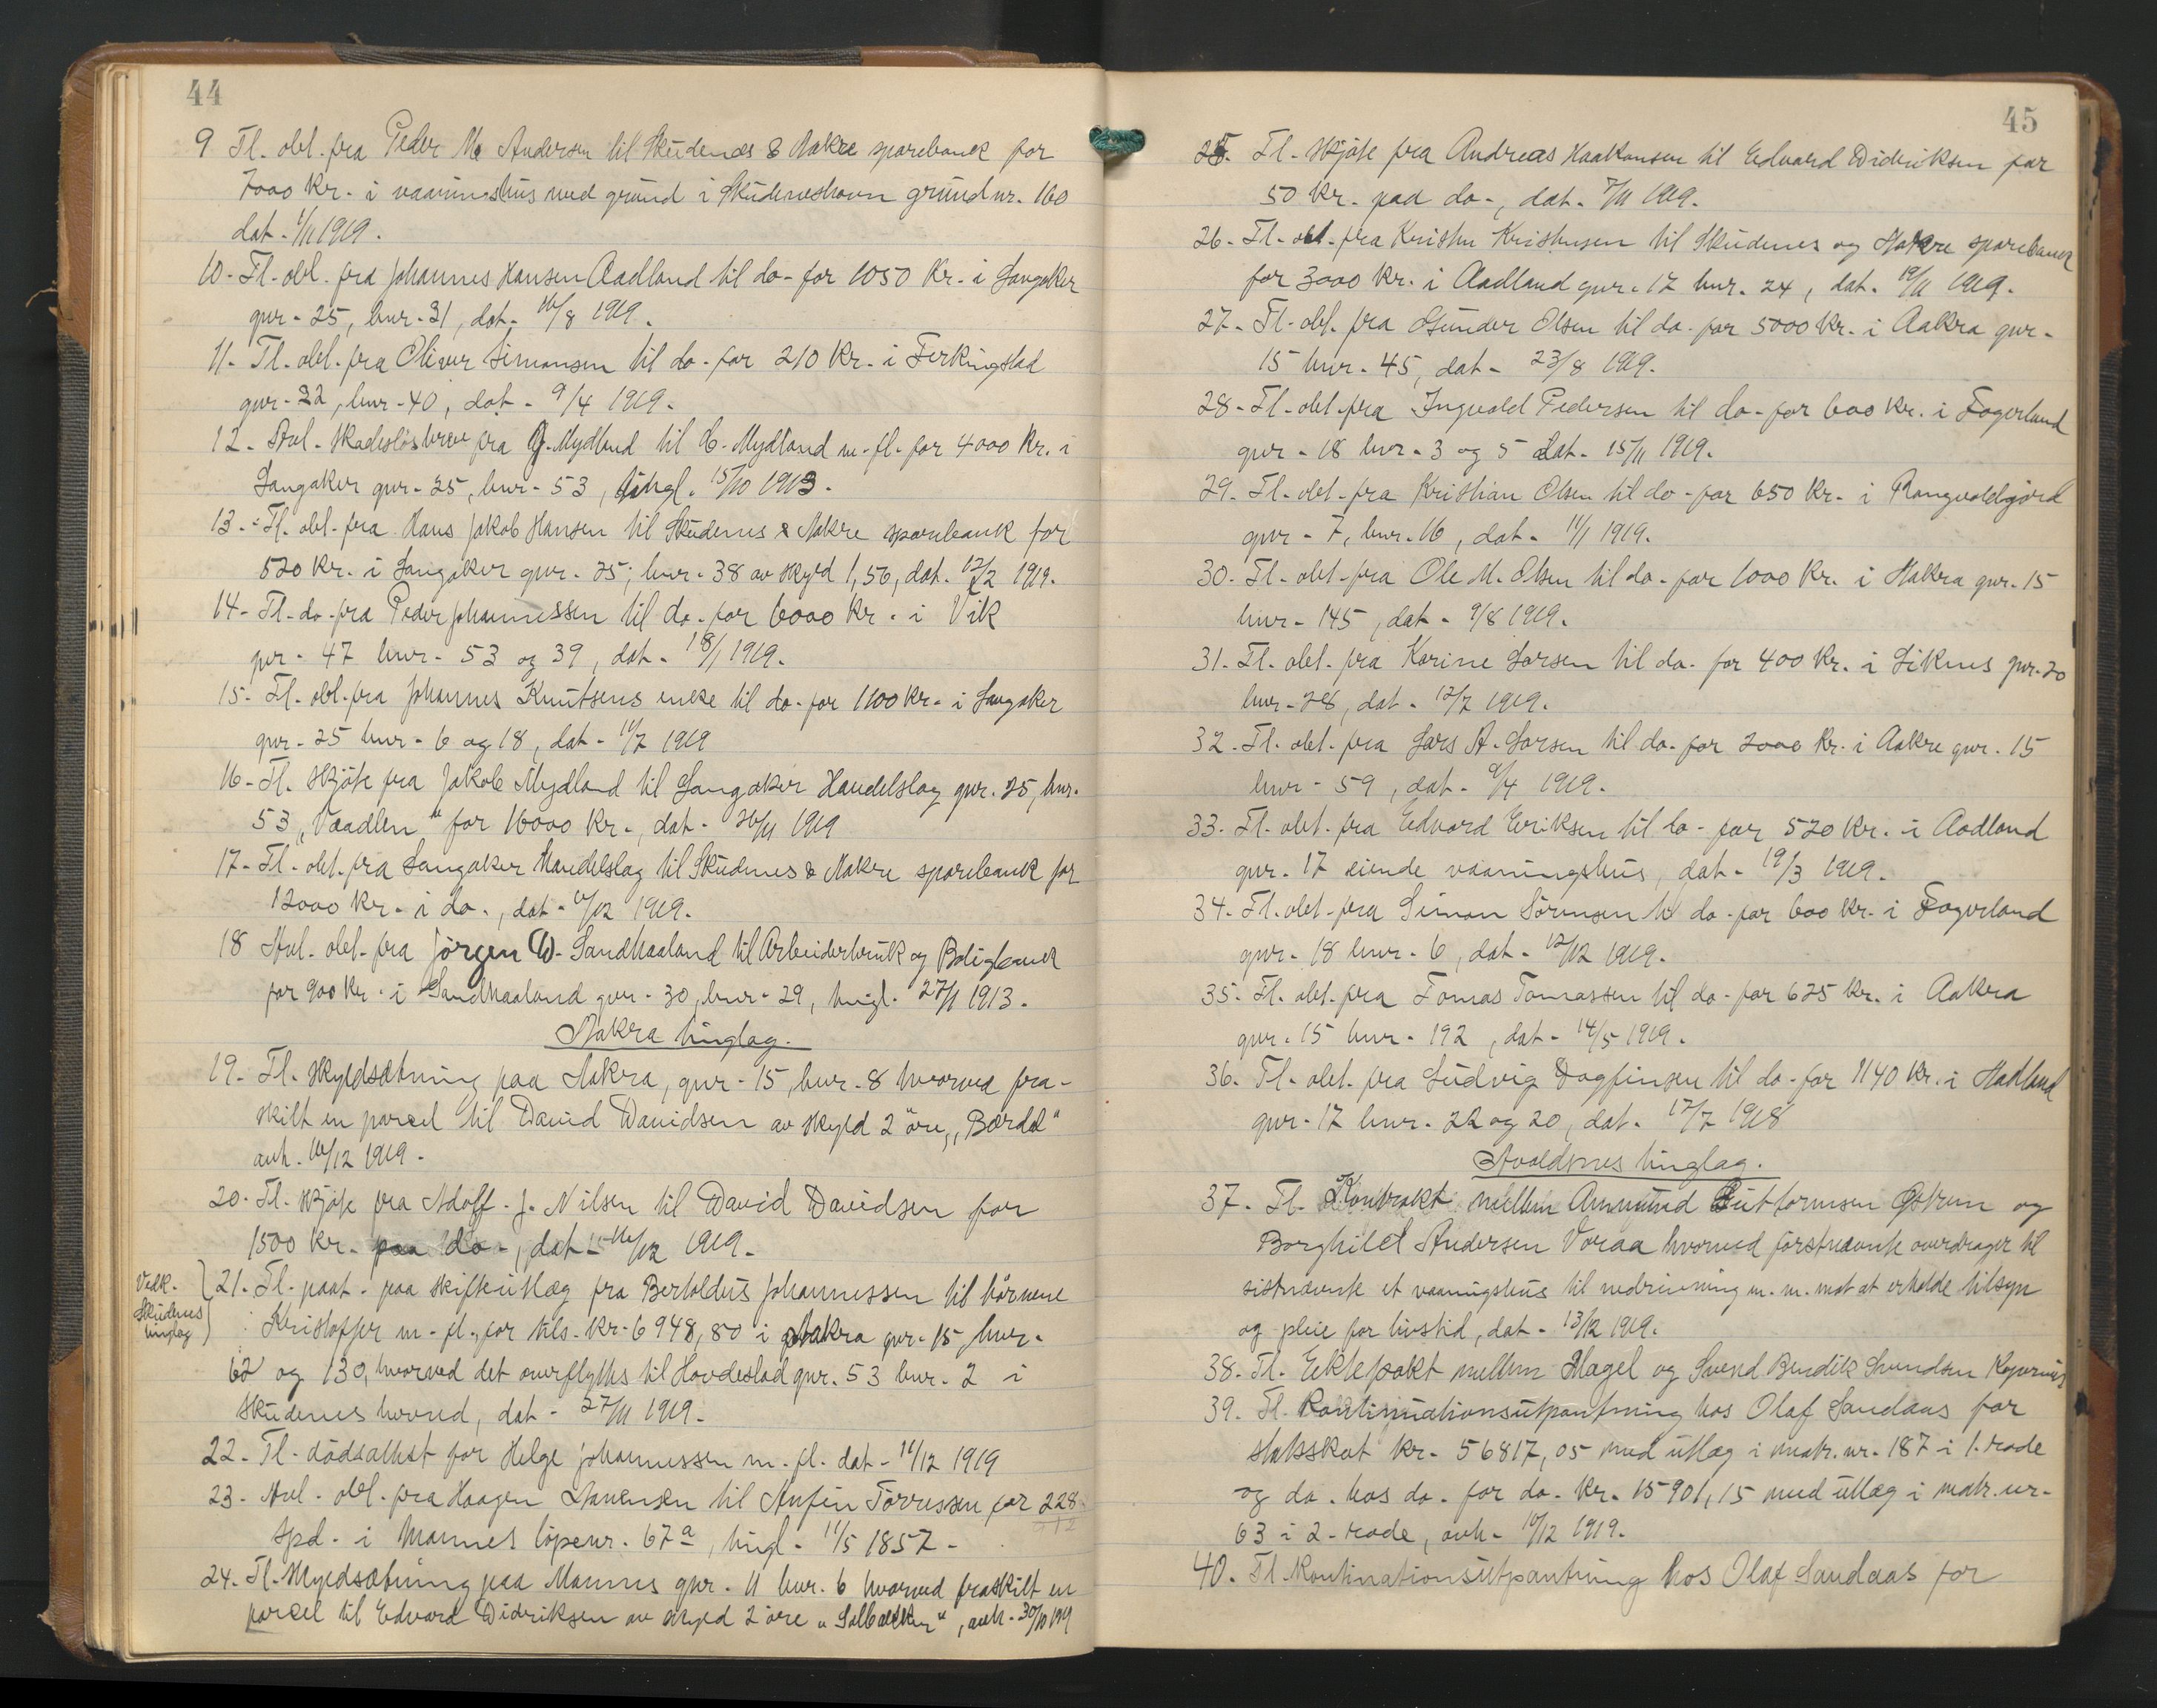 44
9 Tl. obl. fra Peder M. Andersen til Skudenes & Aakre sparebank for
7000 kr. i vaaningshus med grund i Skudeneshavn grundnr. 160
dat. 1/11 1919.
10. Tl. obl. fra Johannes Hansen Aadland til do. for 1050 Kr. i Sangaker
gnr. 25, bnr. 31, dat. 16/8 1919.
11. Tl. obl. fra Oliver Simonsen til do. for 210 Kr. i Ferkingstad
gnr. 22, bnr. 40, dat. 9/4 1919.
12. Avl. skadeslösbrev fra J. Mydland til C. Mydland m. fl. for 4000 Kr. i
Sangaker gnr. 25, bnr. 53, tingl. 15/10 1913.
13. Tl. obl. fra Hans Jakob Hansen til Skudenes & Aakre sparebank for
520 Kr. i Sangaker gnr. 25, bnr. 38 av skyld 1,56, dat. 12/2 1919.
14. Tl. do. fra Peder Johannessen til do. for 6000 Kr. i Vik
gnr. 47 bnr. 53 og 39, dat. 18/1 1919.
15. Tl. obl. fra Johannes Knutsens enke til do. for 1100 Kr. i Sangaker
gnr. 25 bnr. 6 og 18, dat. 11/7 1919
16. Tl. skjöte fra Jakob Mydland til Sangaker Handelslag gnr. 25, bnr.
53 „Vaadlen" for 16000 Kr., dat. 26/11 1919
17. Tl. obl. fra Sangaker Handelslag til Skudenes & Aakre sparebank for
12000 Kr. i do., dat. 6/12 1919.
18 Avl. obl. fra Jörgen W. Sandhaaland til Arbeiderbruk og Boligbank
for 900 Kr. i Sandhaaland gnr. 30, bnr. 29, tingl. 27/1 1913.
Aakra tinglag.
19. Tl. skyldsætning paa Aakra, gnr. 15, bnr. 8 hvorved fra-
skilt en parcel til David Davidsen av skyld 2 öre, „Bærdd"
avh. 16/12 1919.
20. Tl. skjöte fra Adolf. J. Nilsen til David Davidsen for
1500 kr. paa do., dat. 16/12 1919.
Vedk.
Skudenes
tinglag
21. Tl. paat. paa skifteutlæg fra Bertoldus Johannessen til börnene
Kristoffer m. fl. for tils. Kr. 6948,80 i Aakra gnr. 15 bnr.
62 og 130, hvorved det overflyttes til Hovdestad gnr. 53 bnr. 2 i
Skudenes herred, dat. 27/11 1919.
22. Tl. dödsattest for Helge Johannessen m. fl. dat. 11/12 1919
23. Avl. obl. fra Haagen Danensen til Anfin Torressen for 228
spd. i Mannes löpenr. 67a, tingl. 11/5 1857.
24. Tl. Skyldsætning paa Mannes gnr. 11 bnr. 6 hvorved fraskilt en
parcel til Edvard Didriksen av skyld 2 öre „Solbakken", avh. 30/10 1919
45
25. Tl. skjöte fra Andreas Haakonsen til Edvard Didriksen for
50 Kr. paa do., dat. 7/11 1919.
26. Tl. obl. fra Kristen Kristensen til Skudenes og Aakre sparebank
for 3000 Kr. i Aadland gnr. 17 bnr. 24, dat. 19/11 1919.
27. Tl. obl. fra Gunder Olsen til do. for 5000 Kr. i Aakra gnr.
15 bnr. 45, dat. 23/8 1919.
28. Tl. obl. fra Ingvald Pedersen til do. for 600 Kr. i Fagerland
gnr. 18 bnr. 3 og 5 dat. 15/11 1919.
29. Tl. obl. fra Kristian Olsen til do. for 650 Kr. i Rangvaldgjord
gnr. 7, bnr. 16, dat. 11/1 1919.
30. Tl. obl. fra Ole M. Olsen til do. for 1000 Kr. i Aakra gnr. 15
bnr. 145, dat. 9/8 1919.
31. Tl. obl. fra Karine Larsen til do. for 400 Kr. i Liknes gnr. 20
bnr. 28, dat. 12/7 1919.
32. Tl. obl. fra Lars A. Larsen til do. for 2000 Kr. i Aakre gnr. 15
bnr. 59, dat. 9/4 1919.
33. Tl. obl. fra Edvard Eriksen til do. for 520 Kr. i Aadland
gnr. 17 eiende vaaningshus, dat. 19/3 1919.
34. Tl. obl. fra Simon Sörensen til do. for 600 Kr. i Fagerland
gnr. 18 bnr. 6, dat. 12/12 1919.
35. Tl. obl. fra Tomas Tomassen til do. for 625 Kr. i Aakra
gnr. 15 bnr. 192, dat. 14/5 1919.
36. Tl. obl. fra Ludvig Dagfinsen til do. for 1140 Kr. i Aadland
gnr. 17 bnr. 22 og 20, dat. 17/7 1918
Avaldsnes tinglag.
37. Tl. Kontrakt mellem Ammund Guttormsen Östrem og
Borghild Andersen Voraa hvorved förstnævnte overdrager til
sistnævnte et vaaningshus til nedrivning m. m. mot at erholde tilsyn
og pleie for livstid, dat. 13/12 1919.
38. Tl. Ektepakt mellem Magel og Svend Bendik Svendsen Kopervik
39. Tl. Kontinuationsutpantning hos Olaf Sandaas for
statsskat kr. 56817,05 med utlæg i matr. nr. 187 i 1. rode
og do. hos do. for do. kr. 15901,15 med utlæg i matr. nr.
63 i 2. rode, avh. 10/12 1919.
40. Tl Kontinationsutpantning hos Olaf Sandaas for